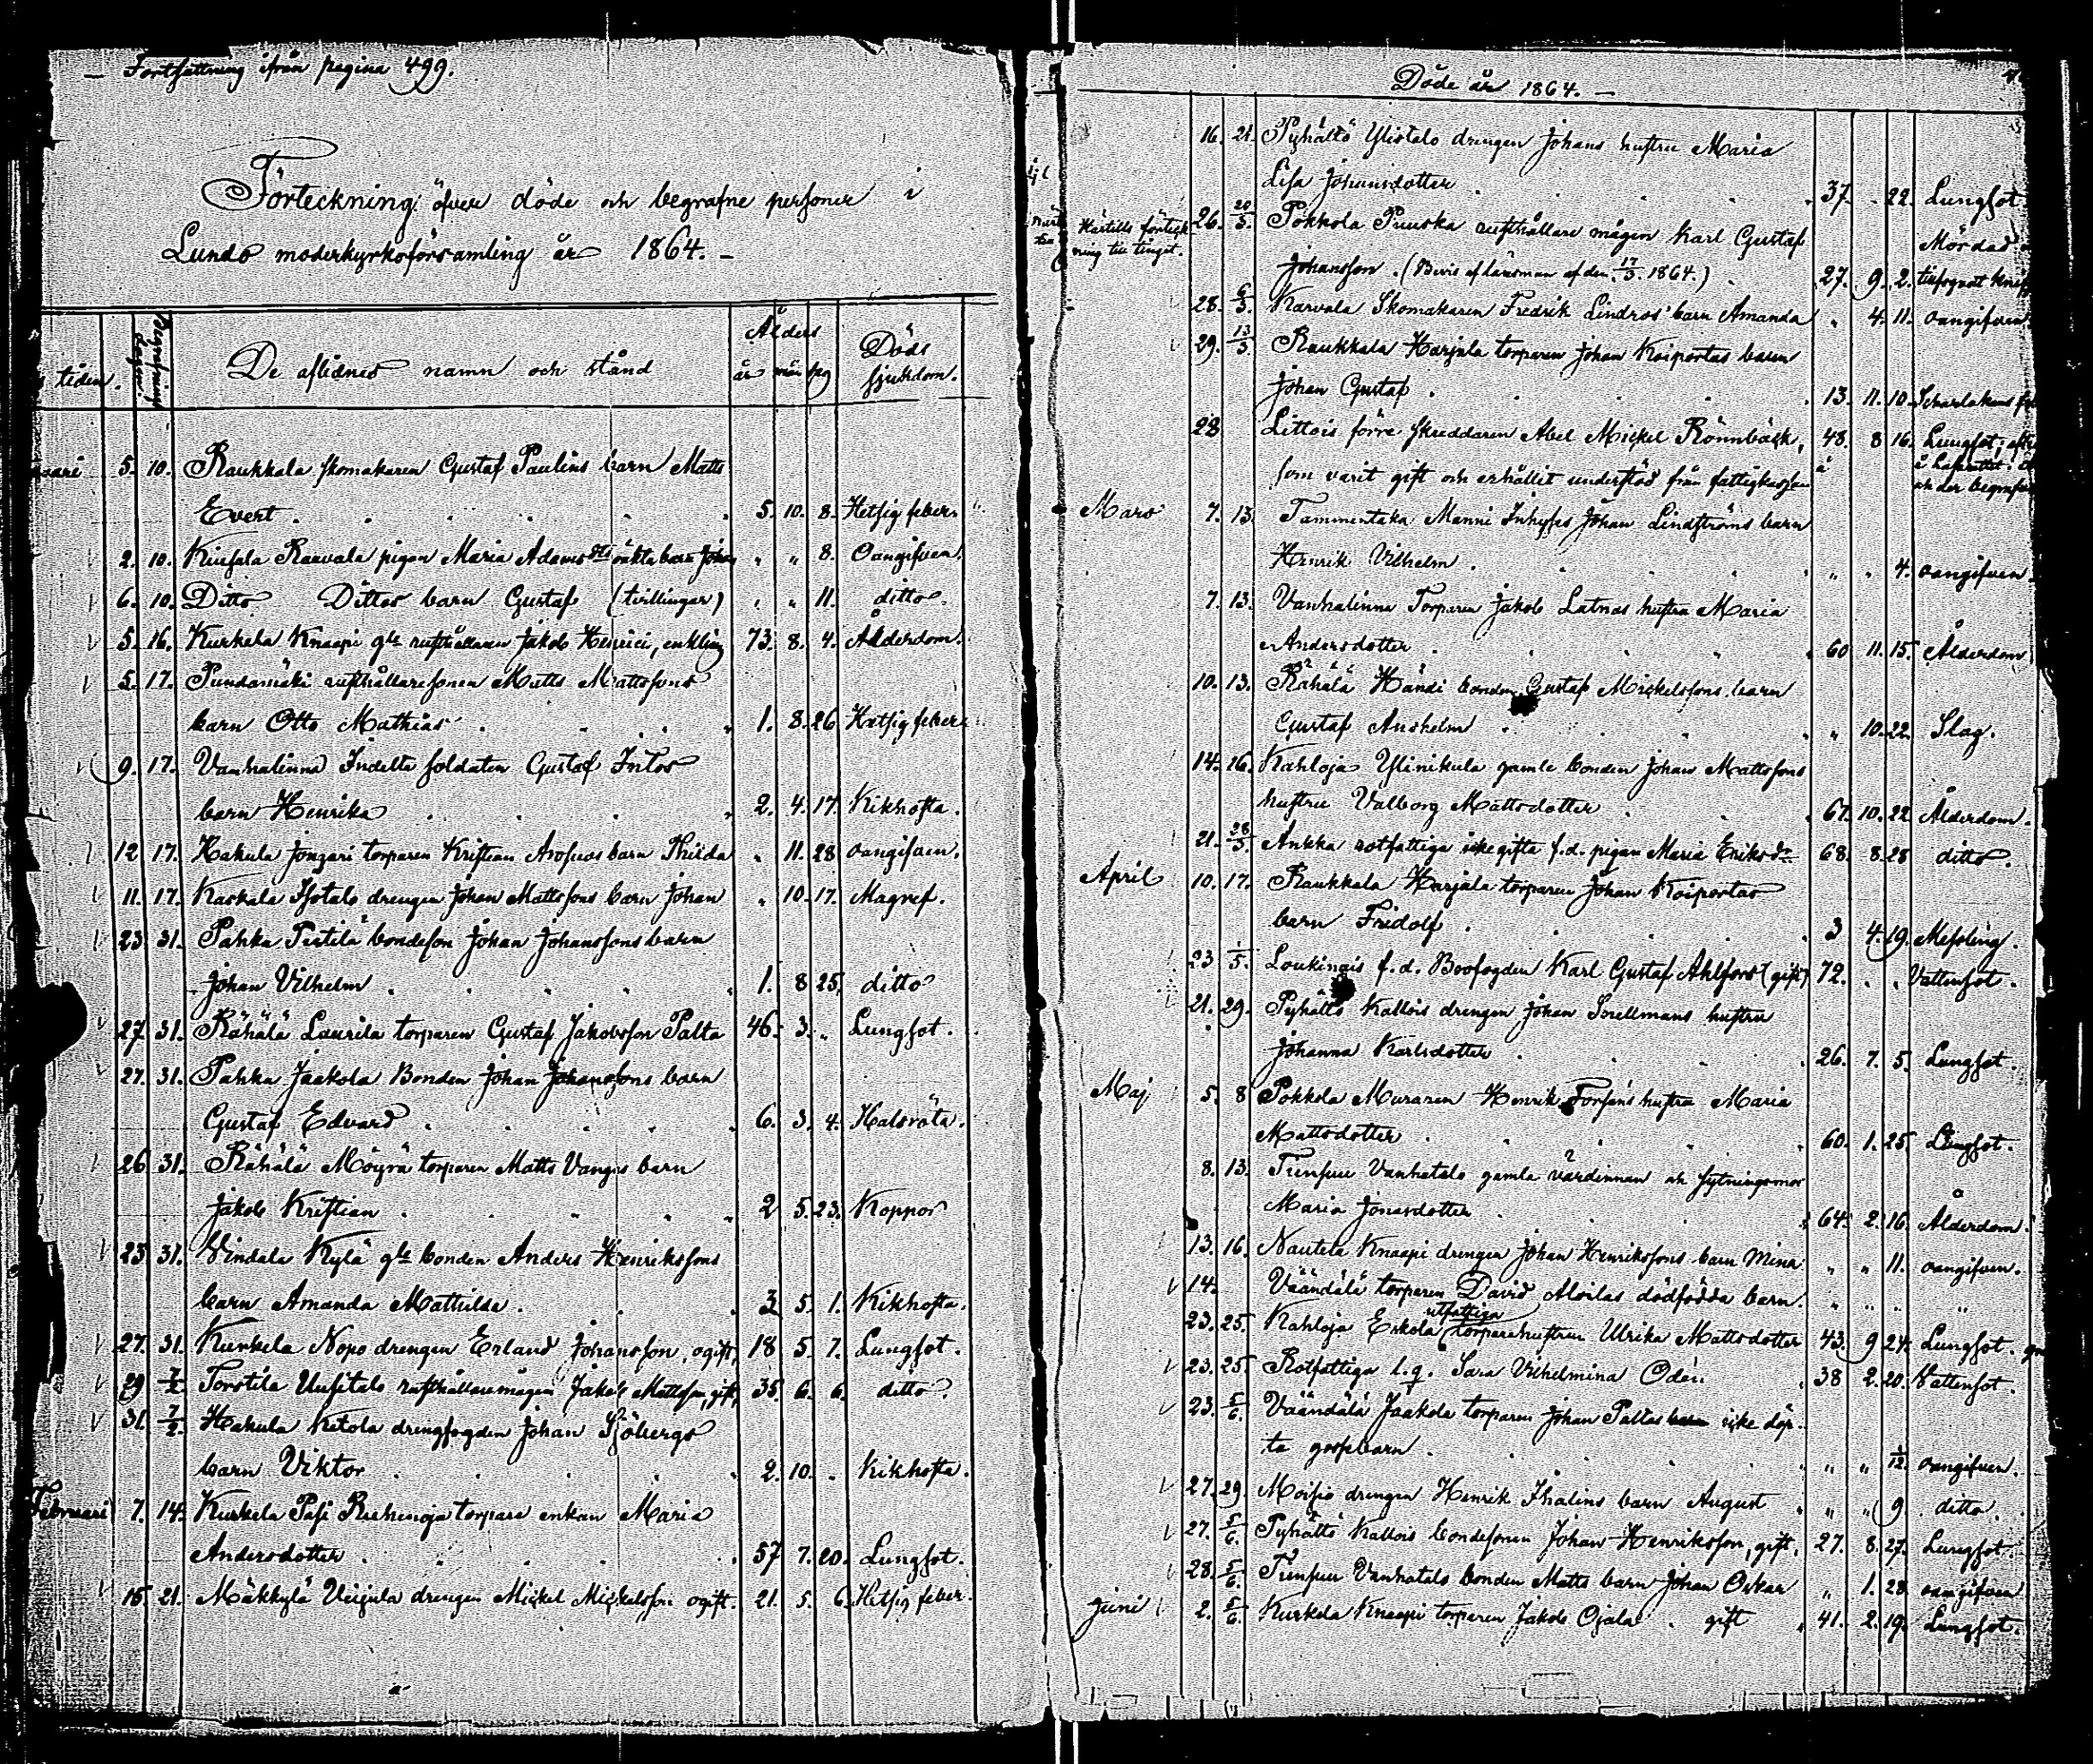 Fortsättning ifrån pagina 499.
Förteckning öfver döde och begrafne personer i
Lundo moderkyrkoförsamling år 1864.
tiden. Begrafningsdagen. De aflidnes namn och stånd Ålders år mån dag Döds sjukdom.
5. 10. Raukkala skomakaren Gustaf Paulins barn Matts
Evert . 5. 10. 8. Hetsig feber.
2. 10. Raavala pigan Maria Adams oäkta barn " " 8. Oangifven.
6. 10. Ditto Dittos barn Gustaf (tvillingar) " " 11. ditto.
5. 16. Kurkela Knaapi gle rusthållaren Jakob Henrici, enkling 73. 8. 4. Ålderdom.
5. 17. Pundamäki rusthållaresonen Matts Mattssons
barn Otto Mathias . 1. 8. 26 Hetsig feber.
9. 17. Vanhalinna Indelta soldaten Gustaf Intos
barn Henrika . 2. 4. 17. Kikhosta.
12 17. Hakula Jonzari torparen Kristian barn Thilda " 11. 28 oangifven.
11. 17. Kaskala Isotalo drengen Johan Mattssons barn Johan " 10. 17. Magref.
23 31. Pahka Pietilä bondeson Johan Johanssons barn
Johan Vilhelm . 1. 8 25. ditto
27. 31. Rähälä Laurila torparen Gustaf Jakobsson Palta 46. 3. " Lungsot.
27. 31. Pahka Jaakola Bonden Johan Johanssons barn
Gustaf Edvard . 6. 3. 4. Halsröta.
26 31. Rähälä Möyrä torparen Matts Vanges barn
Jakob Kristian . 2 5. 23. Koppor
23 31. Vindala Kylä gle bonden Anders Henrikssons
barn Amanda Mathilda. 3 5. 1. Kikhosta.
27. 31. Kurkela Nopo drengen Erland Johansson, ogift, 18 5. 7. Lungsot.
29 7/2 Torstila Uusitalo rusthållaremågen Jakob Mattsson, gift, 35. 6. 6. ditto.
31. 7/2. Hakula Ketola drengfogden Johan Sjöbergs
barn Viktor . 2. 10. . Kikhosta.
Februari 7. 14. Kurkela Pasi torpare enkan Maria
Andersdotter . 57 7. 20. Lungsot.
15 21. Mäkkylä Veijula drengen Mickel Mickelsson ogift. 21. 5. 6. Hetsig feber.
Döde år 1864.
16. 21. Pyhältö Ylistalo drengen Johans hustru Maria
Lisa Johansdotter . 37. . 22. Lungsot
26. 20/5. Pokkola Puuska rusthållare mågen Karl Gustaf Mördad
Härtills förteckning till tinget. Johansson. (Bevis af länsman af den 17/3. 1864.) 27. 9. 2. tillfogadt
28. 6/3. Karvala Skomakaren Fredrik Lindros' barn Amanda " 4. 11. oangifven
29. 13/3. Raukkala Harjula torparen Johan Koiportas barn
Johan Gustaf . 13. 11. 10. Scharlakans
28 Littois förre skreddaren Abel Mickel Rönnbäck, 48. 8 16. Lungsot,
som varit gift och erhållit understöd från fattigkassan och der
Mars 7. 13. Tammentaka Manni Inhyses Johan Lindströms barn
Henrik Vilhelm . " " 4. oangifven.
7. 13. Vanhalinna Torparen Jakob Latnas hustru Maria
Andersdotter . 60 11. 15. Ålderdom
10. 13. Rähälä Händi bonden Gustaf Mickelssons barn
Gustaf Anshelm . " 10. 22. Slag.
14. 26. Kahloja Ylinikula gamle bonden Johan Mattssons
hustru Valborg Mattsdotter . 67. 10. 22 Ålderdom.
21. 28/3. Ankka rotfattiga icke gifta f.d. pigan Maria Eriksdr 68. 8. 28 ditto.
April 10. 17. Raukkala Harjala torparen Johan Koiportas
barn Fridolf . 3 4. 19. Messling.
23 1/5. Loukinais f.d. Boofogden Karl Gustaf Ahlfors (gift) 72. . . Vattensot.
21. 29. Pyhältö Kallois drengen Johan Snellmans hustru
Johanna Karlsdotter . 26. 7. 5. Lungsot.
Maj 5. 8 Pokkola Muraren Henrik Forséns hustru Maria
Mattsdotter . 60. 1. 25. Lungsot.
8. 13. Vanhatalo gamla värdinnan och sytningsmor
Maria Jönsdotter . 64. 2. 16. Ålderdom.
13. 16. Nautela Knaapi drengen Johan Henrikssons barn Mina " " 11. oangifven.
14. Väändälä torparen David Aloilas dödfödda barn. " " " "
utfattiga
23. 25. Kahloja Eskola torparehustrun Ulrika Mattsdotter 43. 9 24. Lungsot.
23. 25 Rotfattiga l.q. Sara Vilhelmina Odén. 38 2. 20. Vattensot.
23. 5/6. Väändälä Jaakola torparen Johan Paltas icke döp-
ta gossebarn . " " 1/12. oangifven.
27. 29 Moisio drengen Henrik Ihalins barn August " " 9. ditto.
27. 5/6. Pyhältö Kallois bondesonen Johan Henriksson, gift. 27. 8. 27. Lungsot.
28. 5/6. Vanhatalo bonden Matts barn Johan Oskar " 1. 28. oangifven
Juni 2. 5/6. Kurkela Knaapi torparen Jakob Ojala . gift 41. 2. 19. Lungsot.